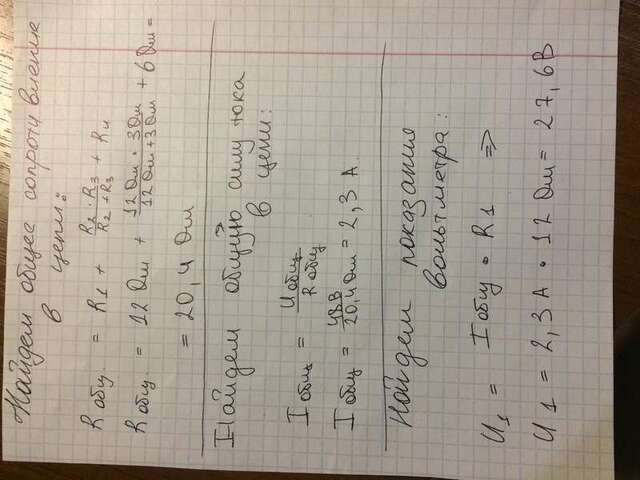 Найдем общее сопротивление
в цепи:
R общ. = R1 + R2 · R3 / R2 + R3 + R4
R общ. = 12 Ом + 12 Ом · 3 Ом / 12 Ом + 3 Ом + 6 Ом =
= 20,4 Ом
Найдем общую силу тока
в цепи:
I общ = U общ / R общ
I общ = 48 В / 20,4 Ом = 2,3 А.
Найдем показания
вольтметра:
U1 = I общ · R1 ⇒
U1 = 2,3 А · 12 Ом = 27,6 В